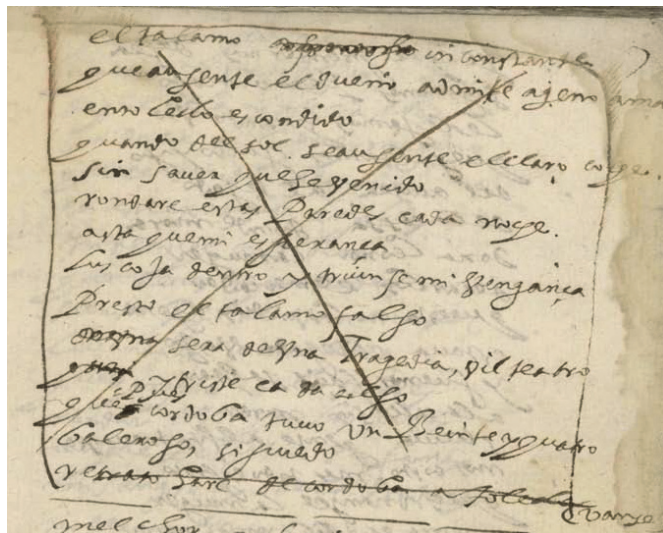 el talamo inconstante
que ausente el dueño admite ajeno ama
en toledo escondido
quando del sol se ausente el claro coçhe.
sin saver que he venido
rondare estas Paredes cada noçhe.
asta que mi esperança
los coja dentro y triunfe mi vengança
Preste el talamo falso
sera de vna Tragedia, vil teatro
triste cadaalso
que Pues cordoba tuuo vn Beinte y quatro
baleroso, si puedo
retrato hare de cordoba a toledo
vanse
melchor